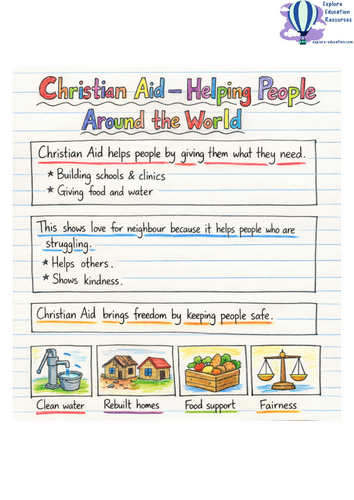 Explore
Education
Resources
explore-education.com
Christian Aid – Helping People
Around the World
Christian Aid helps people by giving them what they need.
* Building schools & clinics
* Giving food and water
This shows love for neighbour because it helps people who are
struggling.
* Helps others.
* Shows kindness.
Christian Aid brings freedom by keeping people safe.
Clean water
Rebuilt homes
Food support
Fairness